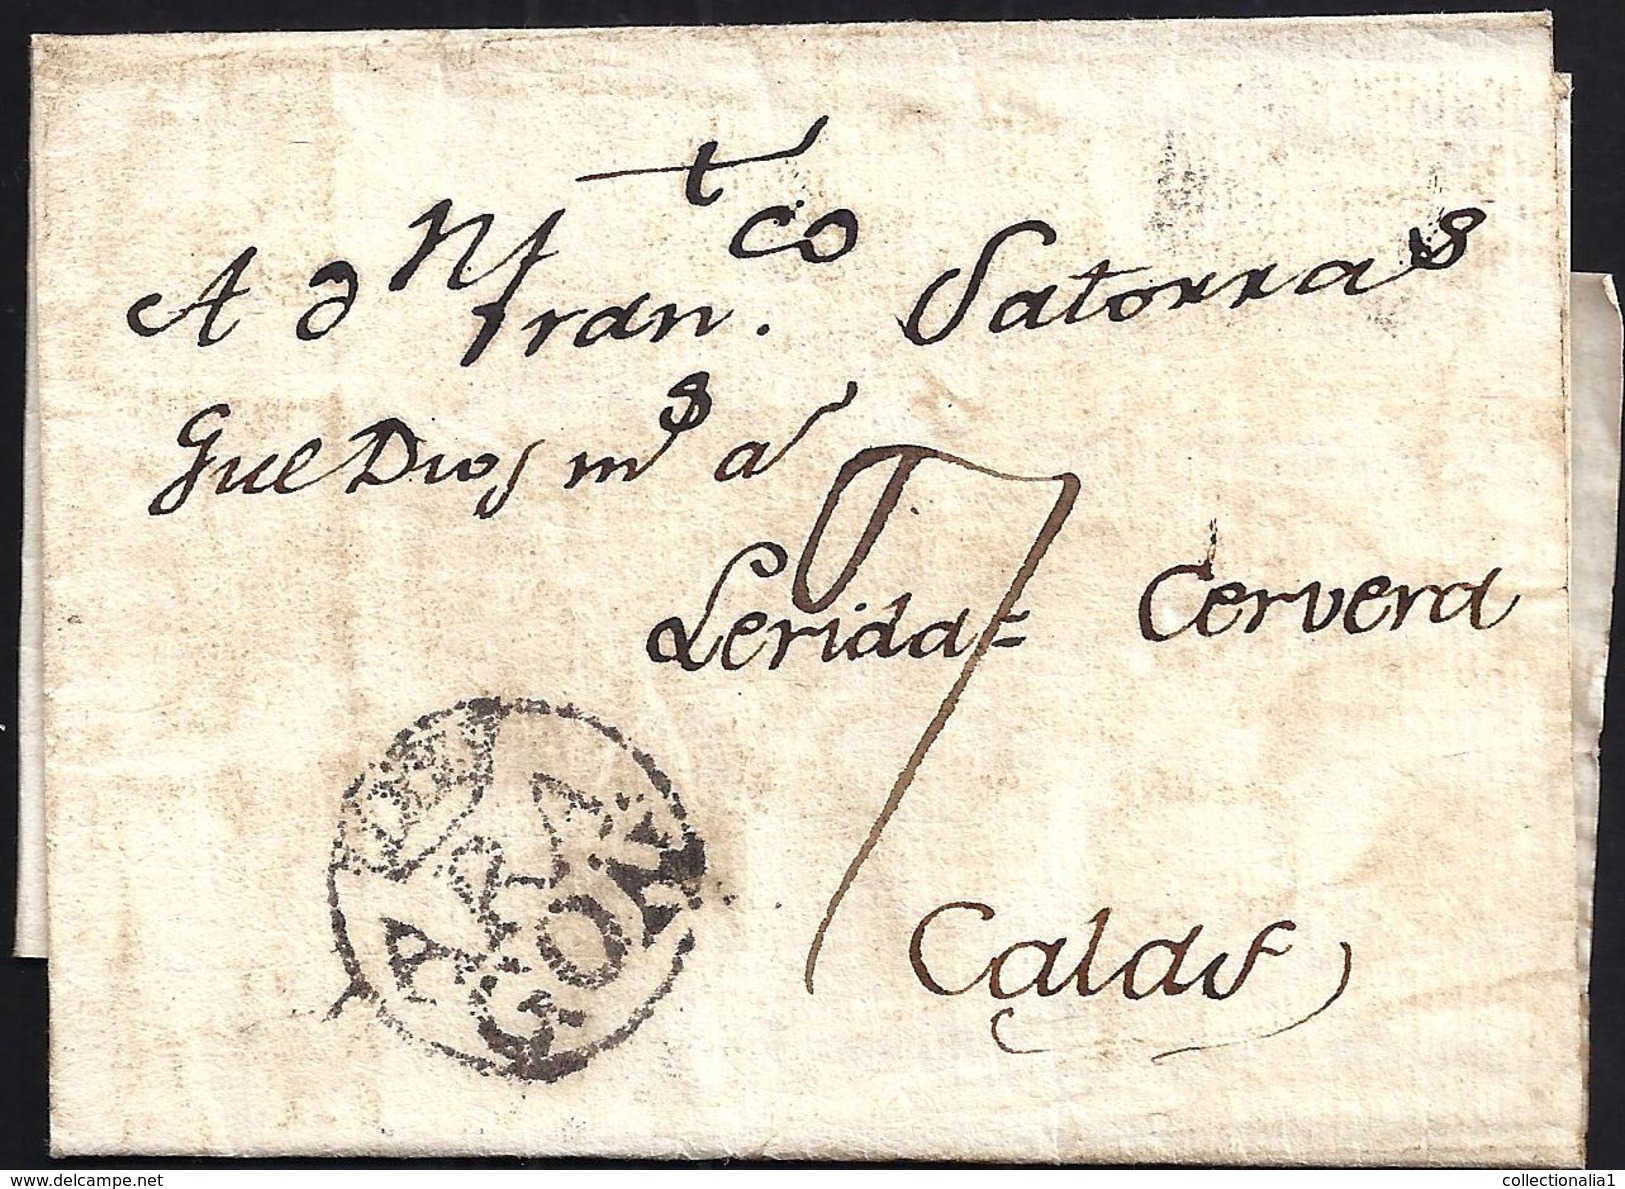 t
A dn Franco Satorras
Gue Dios ms as
7
Lerida= Cervera
Caldas
ARA
GON
delcampe.net
collectionalia1